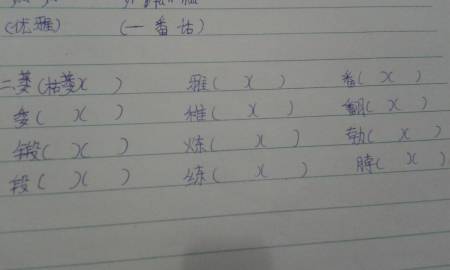 (优雅) (一番话)
二萎(枯萎)( ) 雅( )( ) 番( )( )
委( )( ) 稚( )( ) 翻( )( )
锻( )( ) 炼( )( ) 勃( )( )
段( )( ) 练( )( ) 脖( )( )